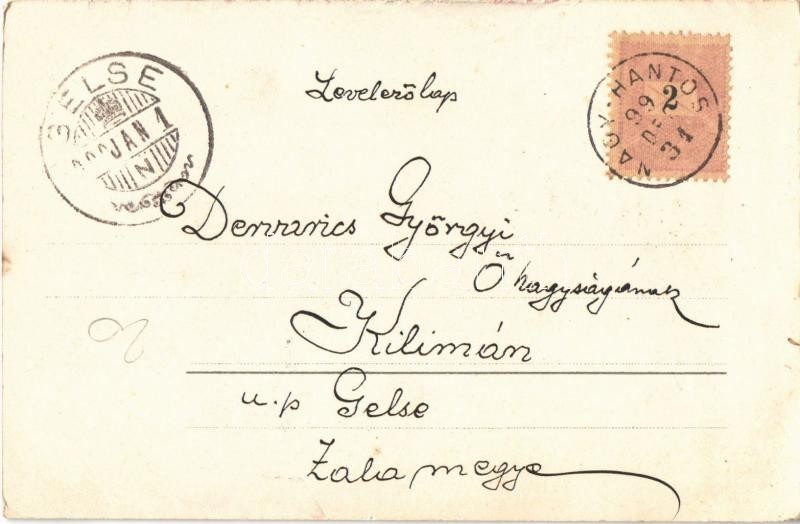 GELSE
900 JAN 1
N
Levelezőlap
NAGY-HANTOS
99
DE
31
2
Györgyi
Ő nagyságának
Kilimán
u.p Gelse
Zala megye